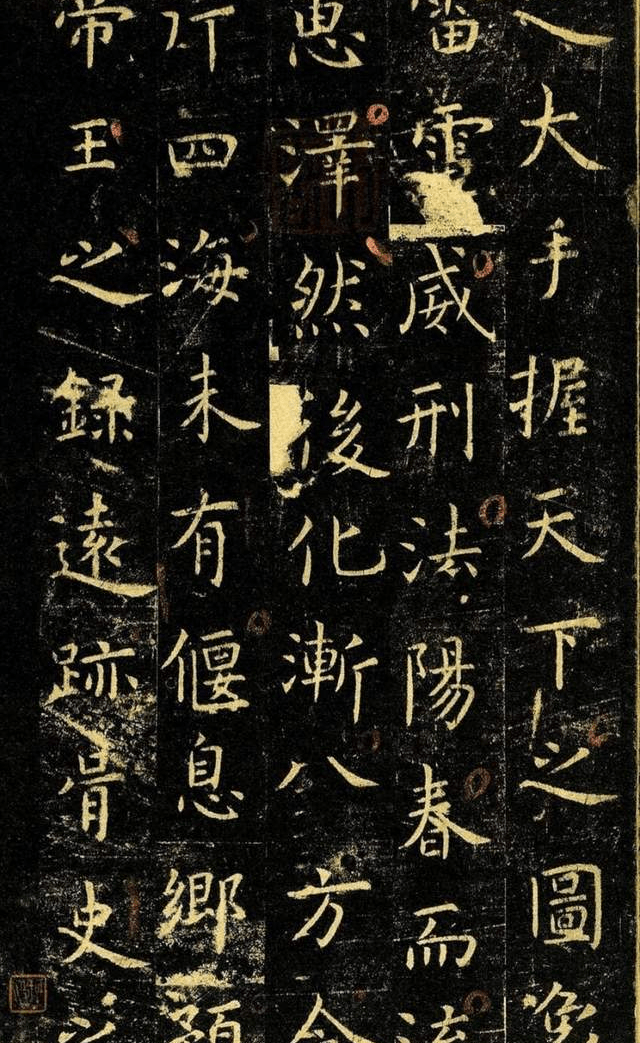 大手握天下之圖象
雷電威刑法陽春而流
惠澤然後化漸八方令
行四海未有偃息鄉
帝王之録遠跡胥史之